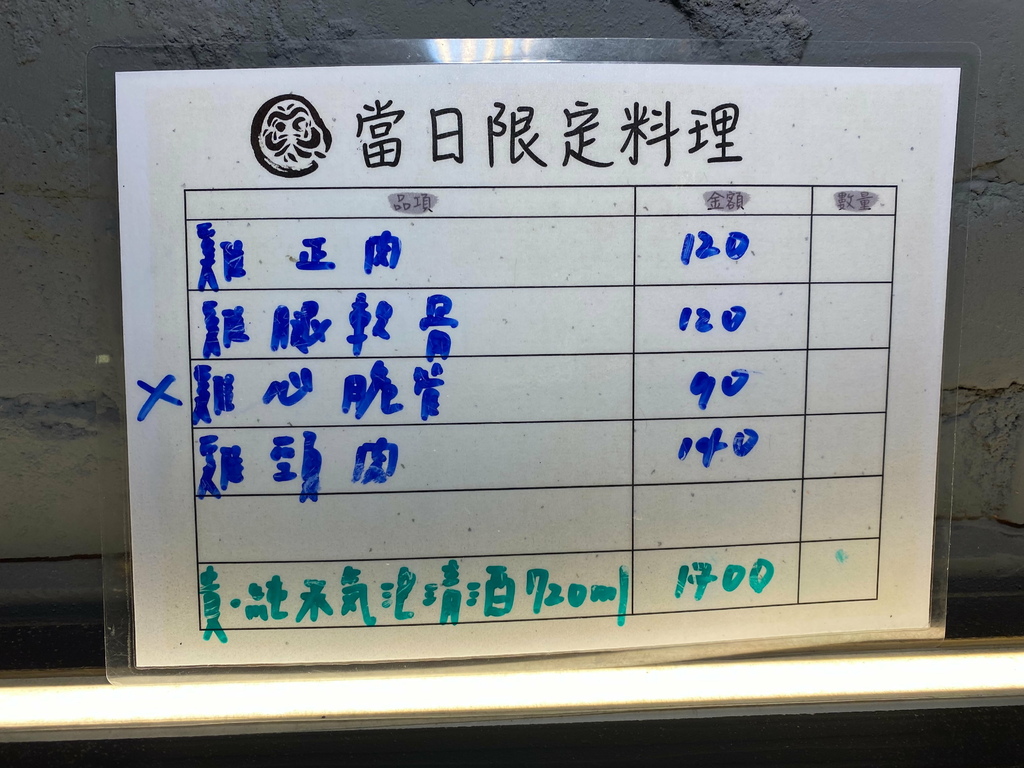 當日限定料理
品項 金額 數量
雞正肉 120
雞膝軟骨 120
X 雞心脆管 90
雞頸肉 140
真・純米氣泡清酒720ml 1700